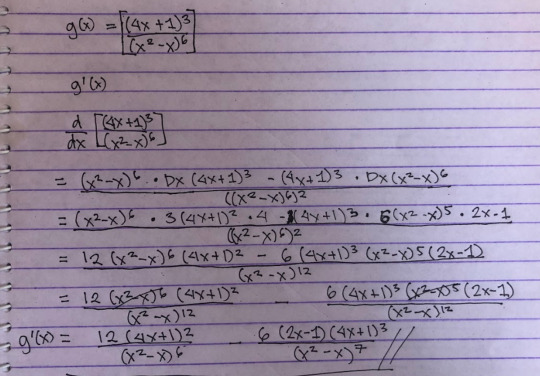 g(x) = [(4x+1)³/(x²-x)⁶]
g'(x)
d/dx [(4x+1)³/(x²-x)⁶]
= (x²-x)⁶ • Dx (4x+1)³ - (4x+1)³ • Dx (x²-x)⁶ / ((x²-x)⁶)²
= (x²-x)⁶ • 3(4x+1)² • 4 - (4x+1)³ • 6(x²-x)⁵ • 2x-1 / ((x²-x)⁶)²
= 12 (x²-x)⁶ (4x+1)² - 6 (4x+1)³ (x²-x)⁵ (2x-1) / (x²-x)¹²
= 12 (x²-x)⁶ (4x+1)² / (x²-x)¹² - 6(4x+1)³ (x²-x)⁵ (2x-1) / (x²-x)¹²
g'(x) = 12 (4x+1)² / (x²-x)⁶ - 6 (2x-1)(4x+1)³ / (x²-x)⁷ //